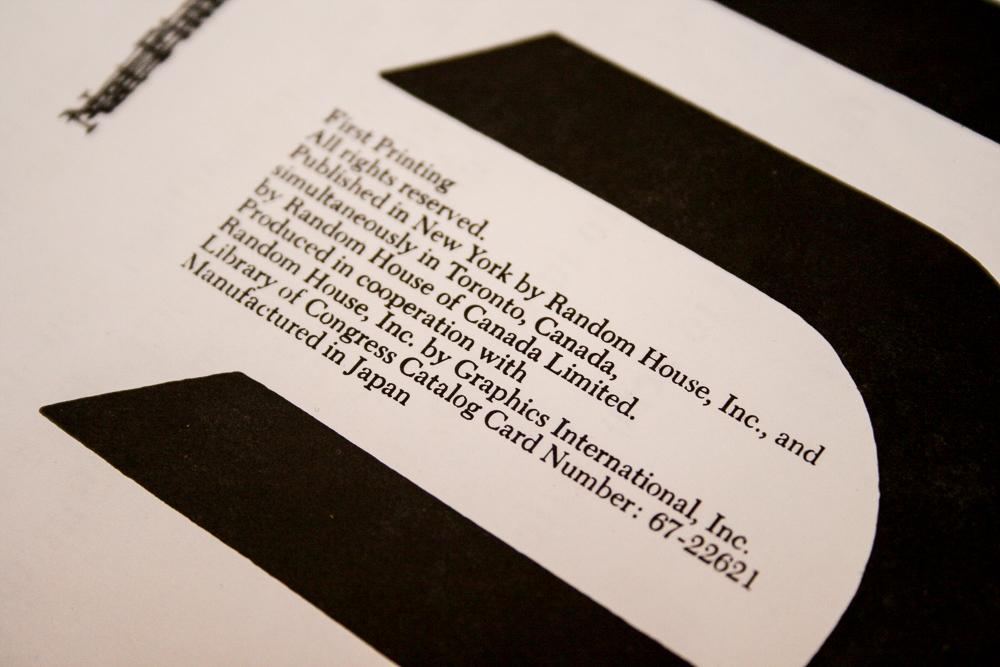 First Printing
All rights reserved.
Published in New York by Random House, Inc., and
simultaneously in Toronto, Canada,
by Random House of Canada Limited.
Produced in cooperation with
Random House, Inc. by Graphics International, Inc.
Library of Congress Catalog Card Number: 67-22621
Manufactured in Japan